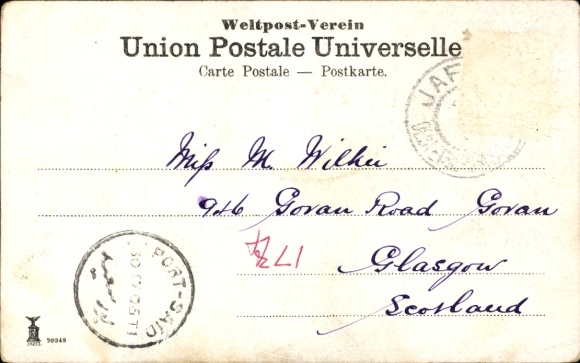 Weltpost-Verein
Union Postale Universelle
Carte Postale — Postkarte.
JAF
Miss M. Wilkie
946 Govan Road Govan
Glasgow
Scotland
PORT-SAID